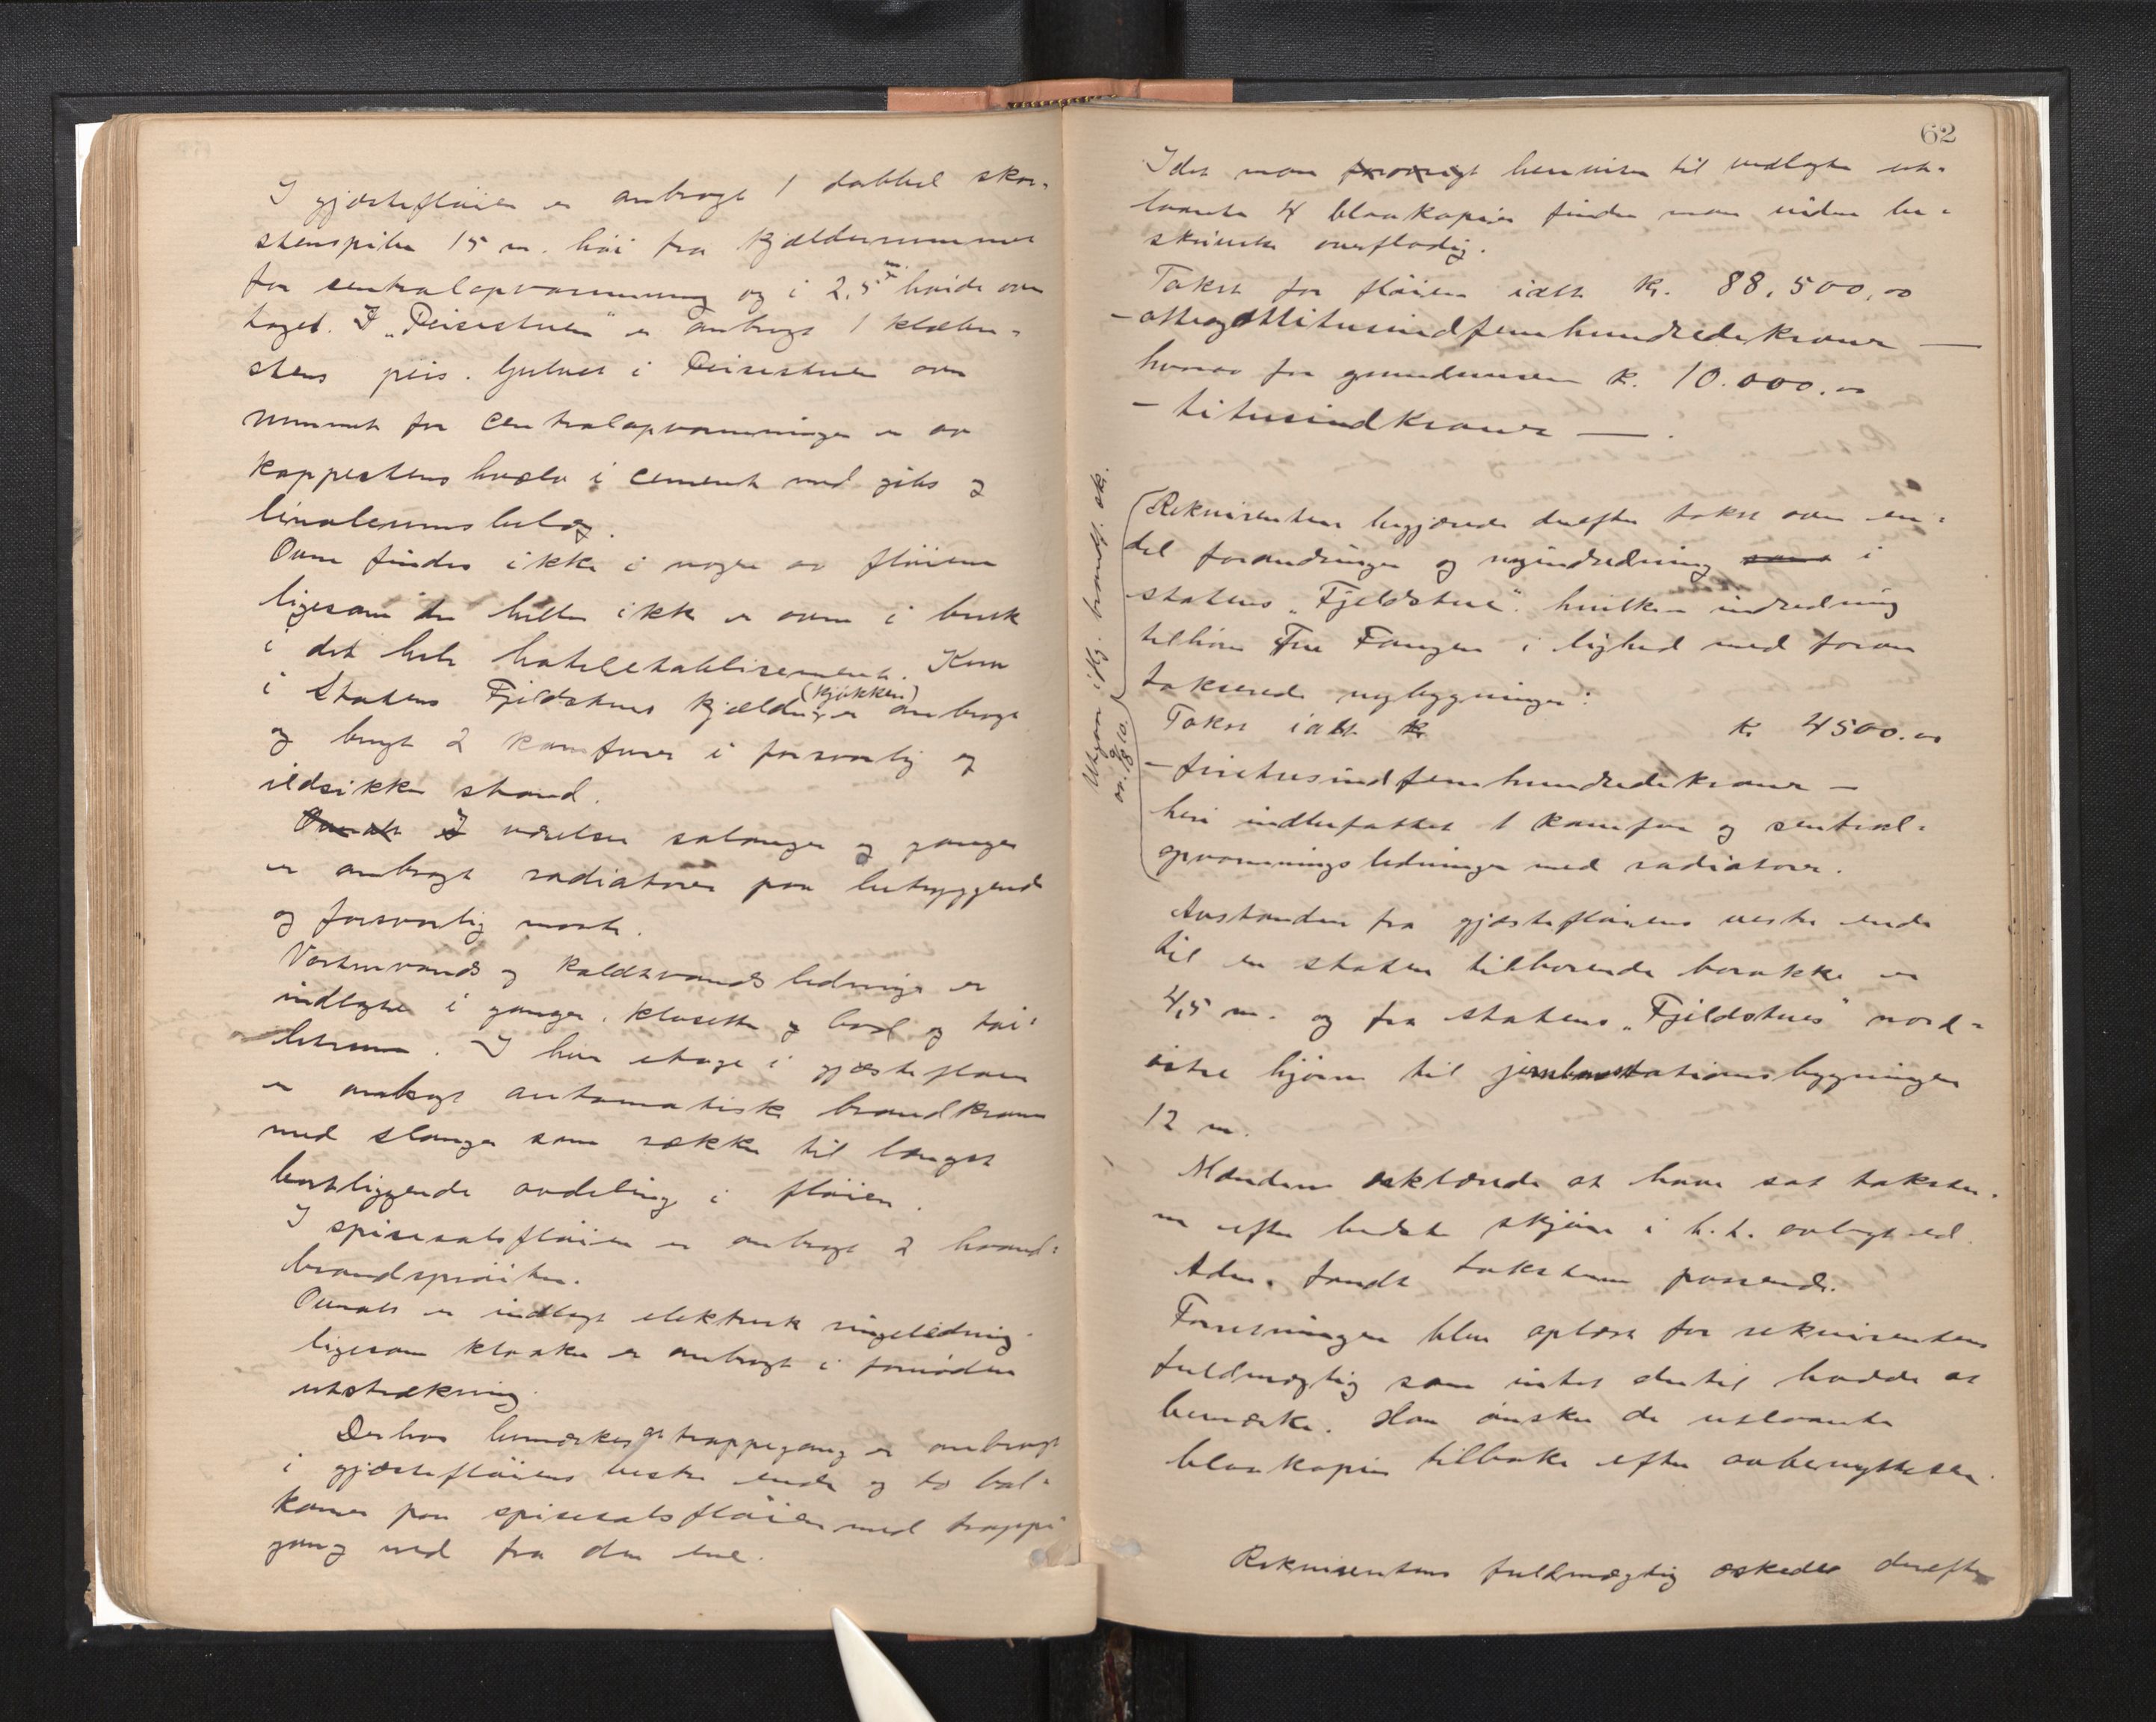 I gjæstefløien er anbragt 1 dobbel skor-
stenspibe 15 m. høi fra kjælderrummet
for sentralopvarmning og i 2,5 m høide over
taget. I „Peisestuen" er anbragt 1 klæber-
stens peis. Gulvet i Peisestuen over
rummet for centralopvarmningen er av
koppestens hvælv i cement med gibs og
linoleumsbelæg.
Ovne findes ikke i nogen av fløiene
ligesom der heller ikke er ovne i bruk
i det hele hoteletablissement. Kun
i Statens Fjeldstues kjælder (kjøkken) er anbragt
og brugt 2 komfurer i forsvarlig og
ildsikker stand.
Overalt I værelser salonger og ganger
er anbragt radiatorer paa betryggende
og forsvarlig maate.
Varmvands og Koldtvands ledninger er
indlagte i ganger, klosetter og bad og toi-
letrum. I hver etage i gjæstefløien
er anbragt automatiske brandkraner
med slanger som rækker til længst
bortliggende avdeling i fløien.
I spisesalsfløien er anbragt 2 haand-
brandsprøiter.
Overalt er indlagt elektrisk ringeledning
ligesom klokker er anbragt i fornøden
utstrækning.
Derhos bemærkes at trappegang er anbragt
i gjæstefløiens vestre ende og to bal-
koner paa spisesalsfløien med trappe
gang ned fra den ene.
62
Idet man forøvrigt henviser til vedlagte ut-
laante 4 blaakopier finder man viden be-
skrivelse overflødig.
Takst for fløien ialt Kr. 88.500,00
- otteogottitusindfemhundredekroner -
hvorav for grundmuren K. 10.000.00
- titusindkroner -.
Rekvirenten begjærede derefter takst over en-
del forandringer og nyindredning som i
statens „Fjeldstue". hvilken indredning
tilhører Fru Fangen i lighed med foran
takserede nybygninger:
Takst ialt kr kr 4500.00
- firetusindfemhundredekroner -
heri indbefattet 1 komfur og sentral-
opvarmnings ledninger med radiatorer.
Utgaar iflg. brandf. sk.
av 18/9 10.
Avstanden fra gjæstefløiens vestre ende
til en staten tilhørende barakke er
4,5 m. og fra statens „Fjeldstues" nord-
østre hjørne til jernbanestationsbygningen
12 m.
Mændene erklærede at have sat takster-
ne efter bedste skjøn i h.t. avlagt ed.
Adm. fandt taksterne passende.
Forretningen blev oplæst for rekvirentens
fuldmægtig som intet dertil hadde at
bemærke. Han ønsker de utlaante
blaakopier tilbake efter avbenyttelsen.
Rekvirentens fuldmægtig æskedes derefter